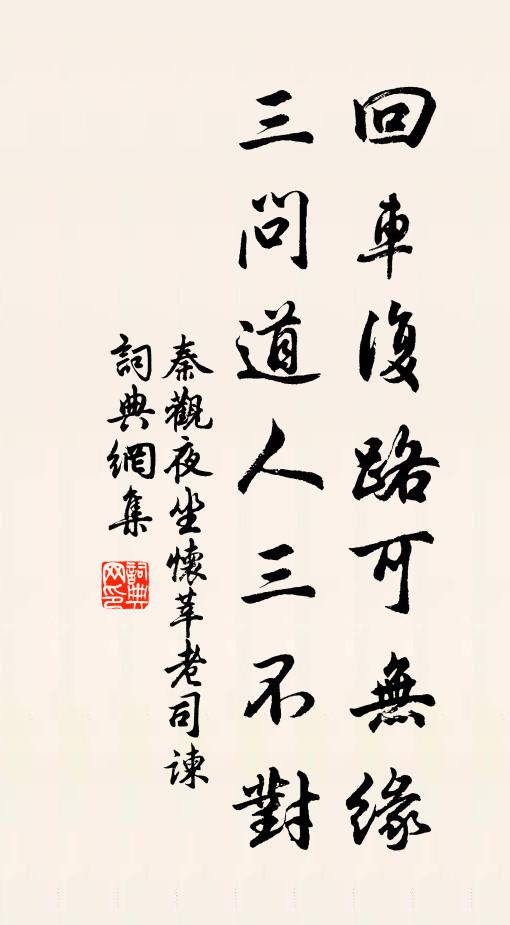 回車復路可無緣
三問道人三不對
秦觀夜坐懷莘老司諫
詞典網集
詞典
网印